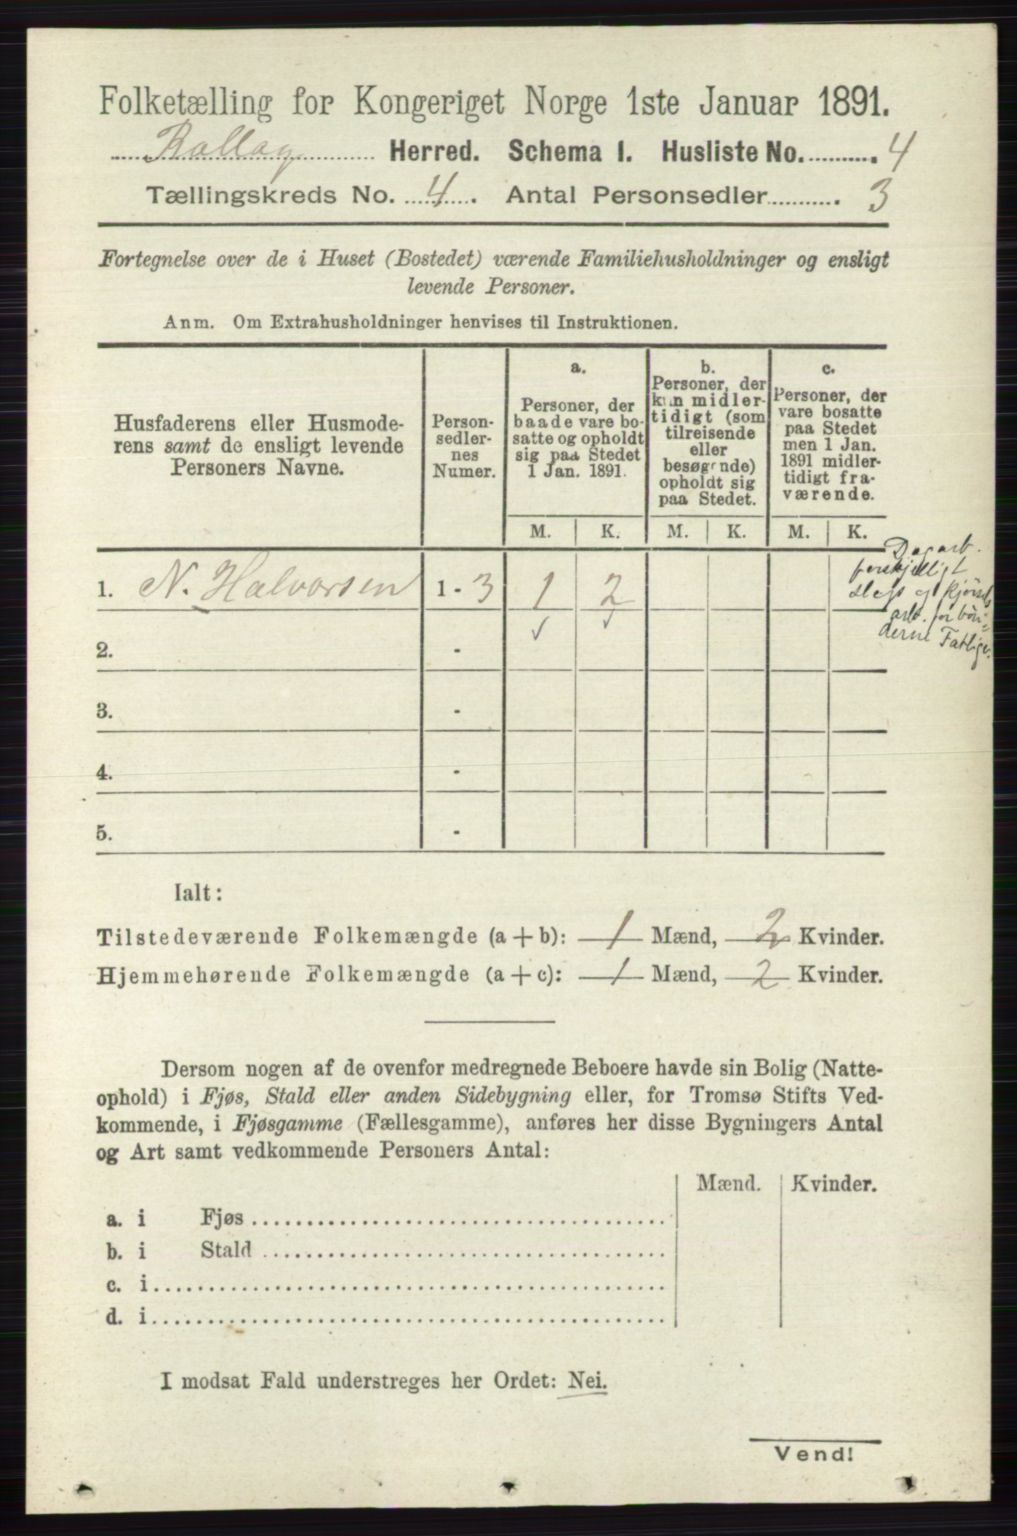 Folketælling for Kongeriget Norge 1ste Januar 1891.
Rollag Herred. Schema I. Husliste No. 4
Tællingskreds No. 4. Antal Personsedler 3
Fortegnelse over de i Huset (Bostedet) værende Familiehusholdninger og ensligt
levende Personer.
Anm. Om Extrahusholdninger henvises til Instruktionen.
Husfaderens eller Husmode-
rens samt de ensligt levende
Personers Navne.
Person-
sedler-
nes
Numer.
a.
Personer, der
baade vare bo-
satte og opholdt
sig paa Stedet
1 Jan. 1891.
b.
Personer, der
kun midler-
tidigt (som
tilreisende
eller
besøgende)
opholdt sig
paa Stedet.
c.
Personer, der
vare bosatte
paa Stedet
men 1 Jan.
1891 midler-
tidigt fra-
værende.
M. K. M. K. M. K.
Dagarb.
forskjelligt
slags og kjørsels
arb. for bøn-
derne Fattige.
1. N. Halvorsen 1 - 3 1 2
2. - ✓ ✓
3. -
4. -
5. -
Ialt:
Tilstedeværende Folkemængde (a + b): 1 Mænd, 2 Kvinder.
Hjemmehørende Folkemængde (a + c): 1 Mænd, 2 Kvinder.
Dersom nogen af de ovenfor medregnede Beboere havde sin Bolig (Natte-
ophold) i Fjøs, Stald eller anden Sidebygning eller, for Tromsø Stifts Ved-
kommende, i Fjøsgamme (Fællesgamme), anføres her disse Bygningers Antal
og Art samt vedkommende Personers Antal:
Mænd. Kvinder.
a. i Fjøs
b. i Stald
c. i
d. i
I modsat Fald understreges her Ordet: Nei.
Vend!